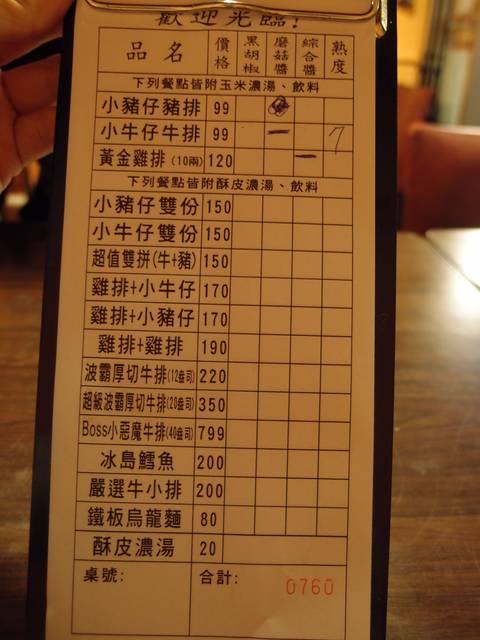 歡迎光臨!
品名 價格 黑胡椒 磨菇醬 綜合醬 熟度
下列餐點皆附玉米濃湯、飲料
小豬仔豬排 99
小牛仔牛排 99 7
黃金雞排(10兩) 120
下列餐點皆附酥皮濃湯、飲料
小豬仔雙份 150
小牛仔雙份 150
超值雙拼(牛+豬) 150
雞排+小牛仔 170
雞排+小豬仔 170
雞排+雞排 190
波霸厚切牛排(12盎司) 220
超級波霸厚切牛排(20盎司) 350
Boss小惡魔牛排(40盎司) 799
冰島鱈魚 200
嚴選牛小排 200
鐵板烏龍麵 80
酥皮濃湯 20
桌號: 合計: 0760